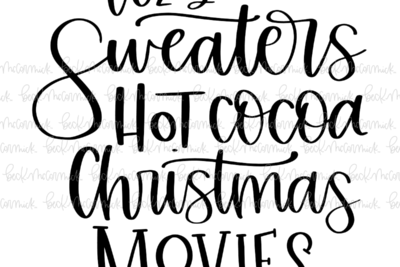 Sweaters
HOT cocoa
Christmas
MOVIES